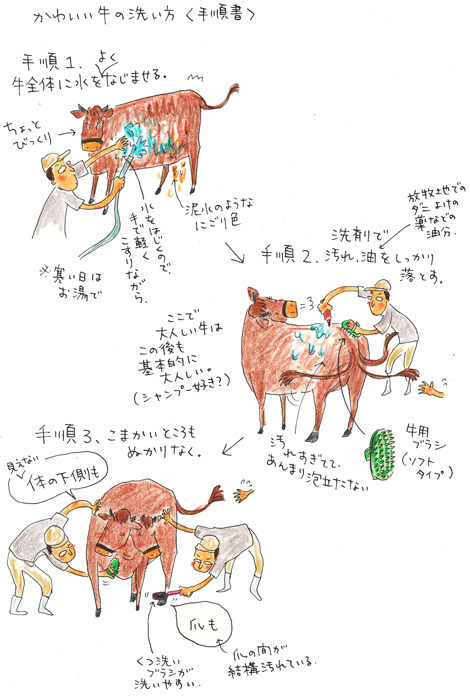 かわいい牛の洗い方〈手順書〉
手順1. よく
牛全体に水をなじませる。
ちょっと
びっくり
水をはじくので、
手で軽く
こすりながら。
泥水のような
にごり色
※寒い日は
お湯で
放牧地での
ダニよけの
薬などの
油分。
手順2. 洗剤で
汚れ、油をしっかり
落とす。
ここで
大人しい牛は
この後も
基本的に
大人しい。
(シャンプー好き?)
汚れすぎてて、
あんまり泡立たない
牛用
ブラシ
(ソフト
タイプ)
手順3、こまかいところも
ぬかりなく。
見えない
体の下側も
爪も
くつ洗い
ブラシが
洗いやすい.
爪の間が
結構汚れている.